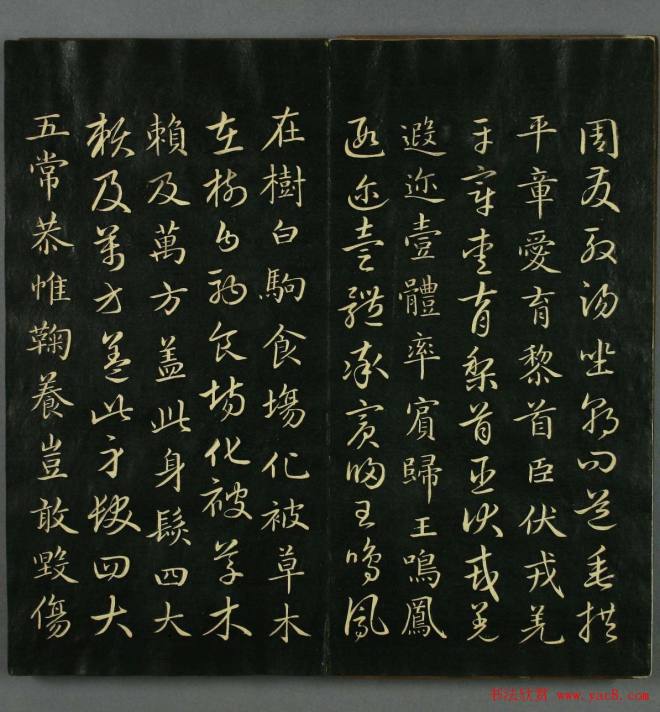 周發殷湯坐朝問道垂拱
平章愛育黎首臣伏戎羌
平章愛育黎首臣伏戎羌
遐迩壹體率賓歸王鳴鳳
遐迩壹體率賓歸王鳴鳳
在樹白駒食場化被草木
在樹白駒食場化被草木
賴及萬方盖此身髮四大
賴及萬方盖此身髮四大
五常恭惟鞠養豈敢毀傷
书法欣赏 www.yac8.com